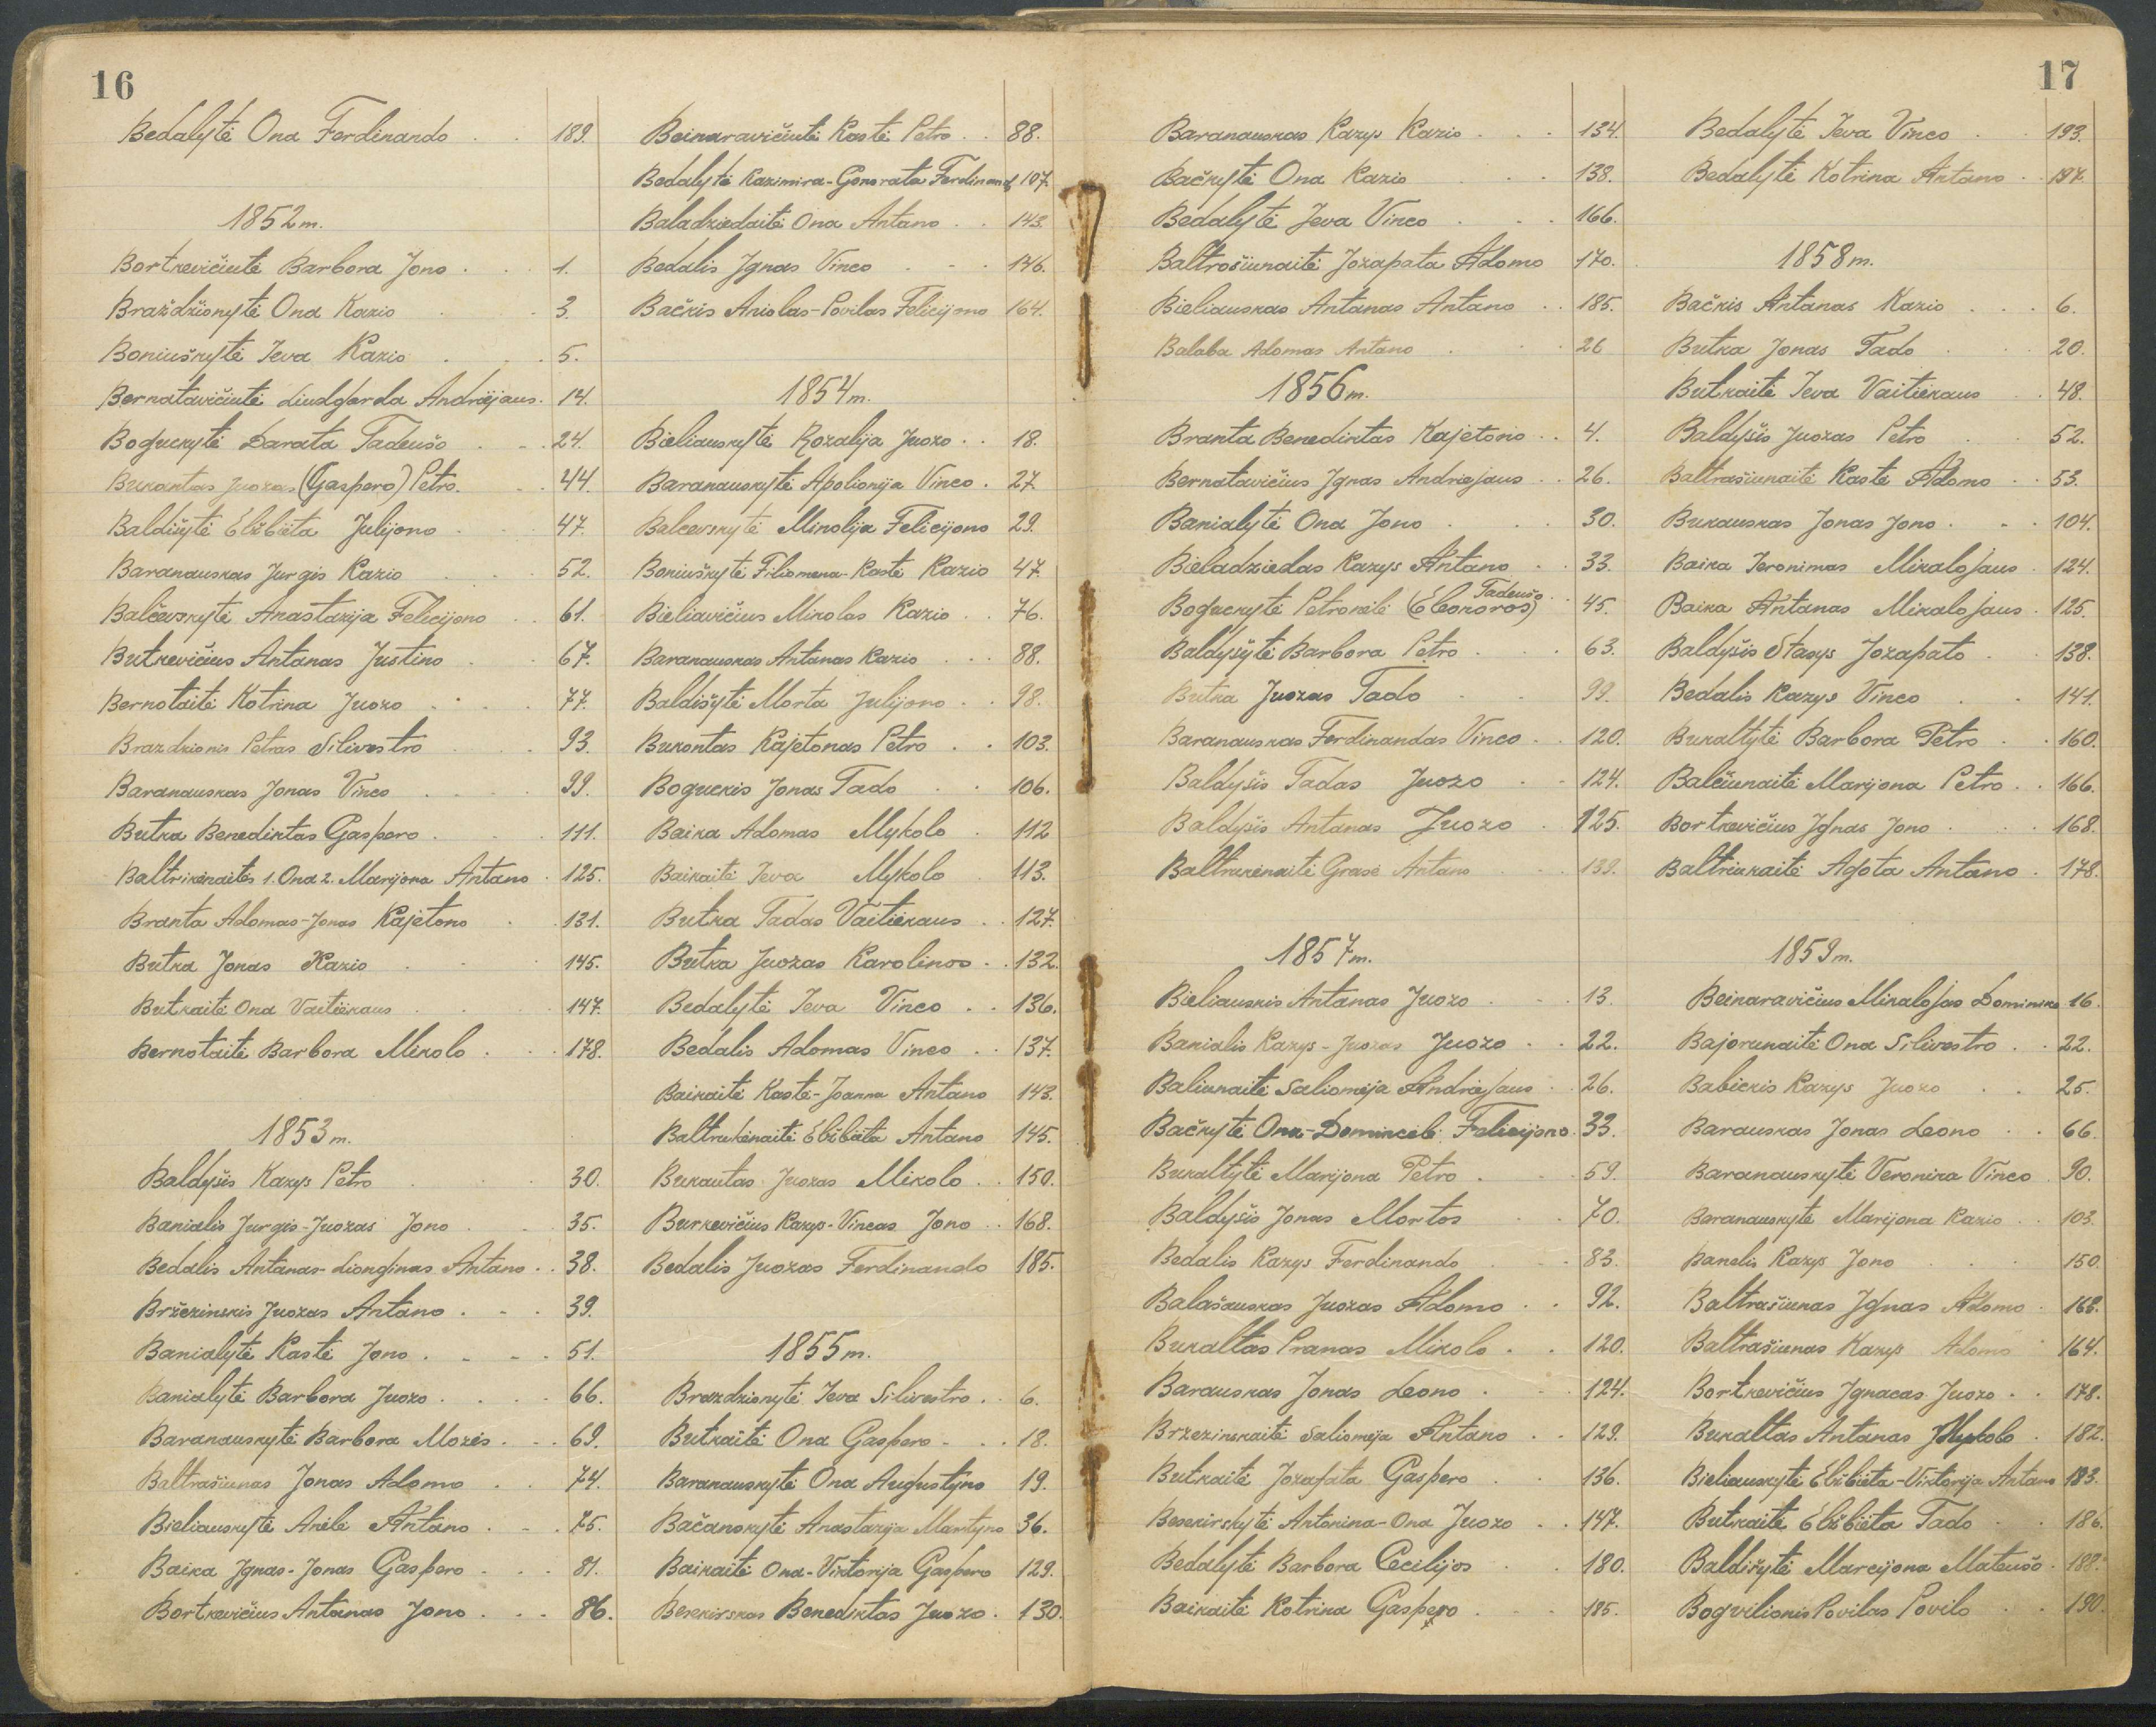 16
Bedalytė Ona Ferdinando . . 189.
1852 m.
Bortkevičiutė Barbora Jono . . . 1.
Braždžionytė Ona Kazio . . 3.
Boniuškytė Ieva Kazio . . . 5.
Bernatavičiutė Liudgarda Andriejaus. 14.
Boguckytė Darata Tadeušo . . . 24.
Bukantas Juozas (Gaspero) Petro. . . 44.
Baldišytė Elžbieta Julijono . . . 47.
Baranauskas Jurgis Kazio . . . 52.
Balčevskytė Anastazija Felicijono . . 61.
Butkevičius Antanas Justino . . 67.
Bernotaitė Kotrina Juozo . . . . 77.
Brazdžionis Petras Silivestro . . . 93.
Baranauskas Jonas Vinco . . . . 99.
Butka Benediktas Gaspero . . . 111.
Baltrikėnaitės 1. Ona 2. Marijona Antano . 125.
Branta Adomas-Jonas Kajetono . . 131.
Butka Jonas Kazio . . . 145.
Butkaitė Ona Vaitiekaus . . . 147.
Bernotaitė Barbora Mikolo . . . 178.
1853 m.
Baldyšis Kazys Petro . . . 30.
Banialis Jurgis-Juozas Jono . . . 35.
Bedalis Antanas-Lionginas Antano . . 38.
Bržezinskis Juozas Antano . . . 39.
Banialytė Kastė Jono . . . . 51.
Banialytė Barbora Juozo . . . . 66.
Baranauskytė Barbora Mozės . . . 69.
Baltrašiunas Jonas Adomo . . 74.
Bieliauskytė Anelė Antano . . . 75.
Baika Ignas-Jonas Gaspero . . . 81.
Bortkevičius Antanas Jono . . . 86.
Beinaravičiutė Kastė Petro . . 88.
Bedalytė Kazimira-Gonorata Ferdinand 107.
Baladziedaitė Ona Antano . . 143.
Bedalis Ignas Vinco . . . 146.
Bačkis Aniolas-Povilas Felicijono 164.
1854 m.
Bieliauskytė Rozalija Juozo . . 18.
Baranauskytė Apolionija Vinco . 27.
Balcevskytė Mikolija Felicijono 29.
Boniuškytė Filiomena-Kastė Kazio 47.
Bieliavičius Mikolas Kazio . . 76.
Baranauskas Antanas Kazio . . . 88.
Baldišytė Morta Julijono . . 98.
Bukontas Kajetonas Petro . . 103.
Boguckis Jonas Tado . . 106.
Baika Adomas Mykolo . 112
Baikaitė Ieva Mykolo . 113.
Butka Tadas Vaitiekaus . . 127.
Butka Juozas Karolinos . . 132.
Bedalytė Ieva Vinco . . 136.
Bedalis Adomas Vinco . . 137.
Baikaitė Kastė-Joanna Antano 143.
Baltrukėnaitė Elžbieta Antano 145.
Bukautas Juozas Mikolo . . 150.
Burkevičius Kazys-Vincas Jono . . 168.
Bedalis Juozas Ferdinando 185.
1855 m.
Brazdžionytė Ieva Silivestro . . 6.
Butkaitė Ona Gaspero . . . 18.
Baranauskytė Ona Augustyno 19.
Bačanskytė Anastazija Martyno 36.
Baikaitė Ona-Viktorija Gaspero 129.
Besekirskas Benediktas Juozo . 130.
17
Baranauskas Kazys Kazio . . . 134.
Bačkytė Ona Kazio . . . 138.
Bedalytė Jeva Vinco . . . 166.
Baltrošiunaitė Jozapata Adomo 170.
Bieliauskas Antanas Antano . . 185.
Balaba Adomas Antano . . . 26
1856 m.
Branta Benediktas Kajetono . . 4.
Bernatavičius Ignas Andriejaus . . 26.
Banialytė Ona Jono . . . 30.
Bieladziedas Kazys Antano . . 33.
Boguckytė Petronėlė (Eleonoros) Tadeušo . . 45.
Baldyšytė Barbora Petro . . . 63.
Butka Juozas Tado . . 99.
Baranauskas Ferdinandas Vinco . . 120.
Baldyšis Tadas Juozo . . 124.
Baldyšis Antanas Juozo . 125.
Baltrukėnaitė Grasė Antano . . 139.
1857 m.
Bieliauskis Antanas Juozo . . . 13.
Banialis Kazys-Juozas Juozo . . 22.
Baliunaitė Saliomėja Andriejaus . . 26.
Bačkytė Ona-Domincėlė Felicijono. 33.
Bukaltytė Marijona Petro . . . 59.
Baldyšis Jonas Mortos . . 70.
Bedalis Kazys Ferdinando . . 83.
Balašauskas Juozas Adomo . . 92.
Bukaltas Pranas Mikolo . . 120.
Barauskas Jonas Leono . . . 124.
Brzezinskaitė Saliomėja Antano . . 129.
Butkaitė Jozafata Gaspero . . 136.
Besekirskytė Antonina-Ona Juozo . . 147.
Bedalytė Barbora Cecilijos . . 180.
Baikaitė Kotrina Gaspero . . . 185.
Bedalytė Ieva Vinco . . 193.
Bedalytė Kotrina Antano . . 197.
1858 m.
Bačkis Antanas Kazio . . . 6.
Butka Jonas Tado . . . 20.
Butkaitė Ieva Vaitiekaus . . 48.
Baldyšis Juozas Petro . . 52.
Baltrašiunaitė Kastė Adomo . . 53.
Bukauskas Jonas Jono . . . 104.
Baika Jeronimas Mikalojaus . 124.
Baika Antanas Mikalojaus . 125.
Baldyšis Stasys Jozapato . . 138.
Bedalis Kazys Vinco . . 141.
Bukaltytė Barbora Petro . . 160.
Balčiunaitė Marijona Petro . . 166.
Bortkevičius Ignas Jono . . . 168.
Baltriukaitė Agota Antano . 178.
1859 m.
Beinaravičius Mikalojas Dominiko 16.
Bajorunaitė Ona Silivestro . . 22.
Babickis Kazys Juozo . . 25.
Barauskas Jonas Leono . . 66.
Baranauskytė Veronika Vinco . 90.
Baranauskytė Marijona Kazio . . 103.
Banelis Kazys Jono . . . 150.
Baltrašiunas Ignas Adomo . 163.
Baltrašiunas Kazys Adomo . 164.
Bortkevičius Ignacas Juozo . . 178.
Bukaltas Antanas Mykolo . 182.
Bieliauskytė Elžbieta-Viktorija Antano 183.
Butkaitė Elžbieta Tado . . 186.
Baldišytė Marcijona Mateušo . 188.
Bogvilionis Povilas Povilo . . 190.